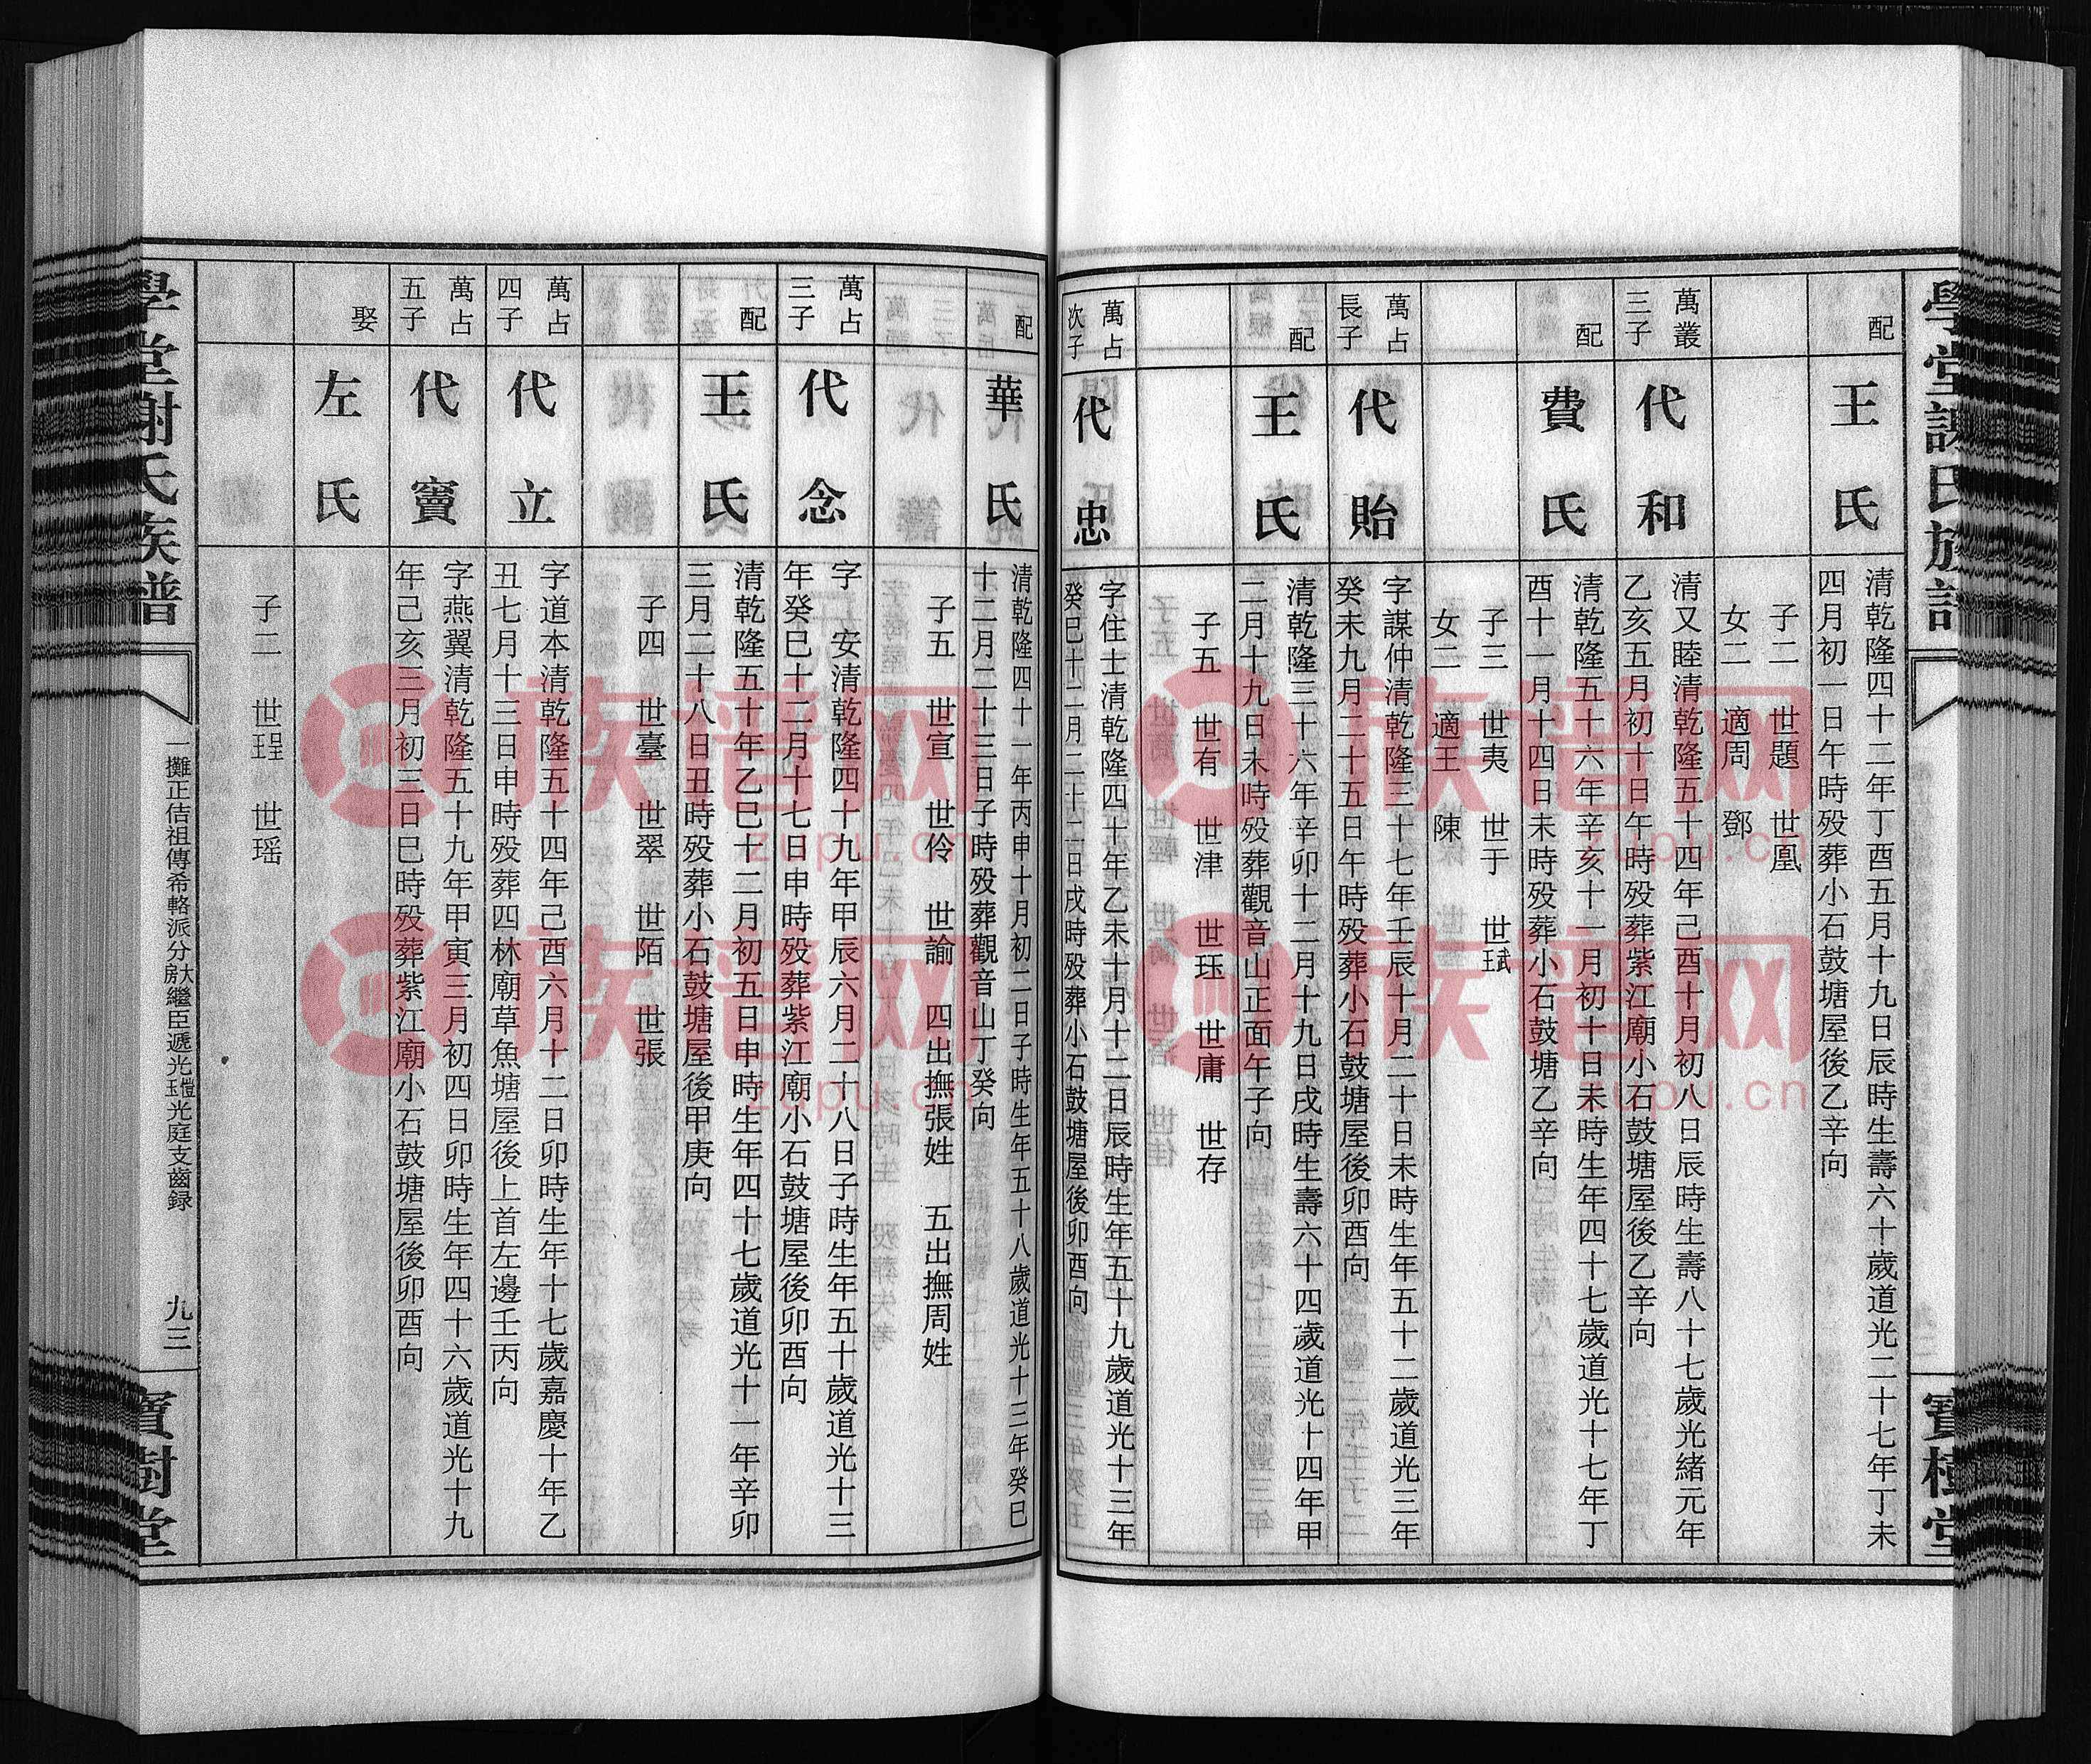 配
王氏
清乾隆四十二年丁酉五月十九日辰時生壽六十歲道光二十七年丁未
四月初一日午時歿葬小石鼓塘屋後乙辛向
子二　世題　世凰
女二　適周　鄧
萬叢
三子
代和
清又睦清乾隆五十四年己酉十月初八日辰時生壽八十七歲光緒元年
乙亥五月初十日午時歿葬紫江廟小石鼓塘屋後乙辛向
配
費氏
清乾隆五十六年辛亥十一月初十日未時生年四十七歲道光十七年丁
酉十一月十四日未時歿葬小石鼓塘乙辛向
子三　世夷　世于　世珷
女二　適王　陳
萬占
長子
代貽
字謀仲清乾隆三十七年壬辰十月二十日未時生年五十二歲道光三年
癸未九月二十五日午時歿葬小石鼓塘屋後卯酉向
配
王氏
清乾隆三十六年辛卯十二月十九日戌時生壽六十四歲道光十四年甲
二月十九日未時歿葬觀音山正面午子向
子五　世有　世津　世珏　世庸　世存
萬占
次子
代忠
字住士清乾隆四十年乙未十月十二日辰時生年五十九歲道光十三年
癸巳十二月二十二日戌時歿葬小石鼓塘屋後卯酉向
配
華氏
清乾隆四十一年丙申十月初二日子時生年五十八歲道光十三年癸巳
十二月二十三日子時歿葬觀音山丁癸向
子五　世宣　世伶　世諭　四出撫張姓　五出撫周姓
萬占
三子
代念
字　安清乾隆四十九年甲辰六月二十八日子時生年五十歲道光十三
年癸巳十二月十七日申時歿葬紫江廟小石鼓塘屋後卯酉向
配
王氏
清乾隆五十年乙巳十二月初五日申時生年四十七歲道光十一年辛卯
三月二十八日丑時歿葬小石鼓塘屋後甲庚向
子四　世臺　世翠　世陌　世張
萬占
四子
代立
字道本清乾隆五十四年己酉六月十二日卯時生年十七歲嘉慶十年乙
丑七月十三日申時歿葬四林廟草魚塘屋後上首左邊壬丙向
萬占
五子
代竇
字燕翼清乾隆五十九年甲寅三月初四日卯時生年四十六歲道光十九
年己亥三月初三日巳時歿葬紫江廟小石鼓塘屋後卯酉向
娶
左氏
子二　世珵　世瑶
學堂謝氏族譜
一攤正佶祖傳希輅派分大房繼臣遞光玉愷光庭支齒録
九三
寶樹堂
族谱网
zupu.cn
族谱网
zupu.cn
族谱网
zupu.cn
族谱网
zupu.cn